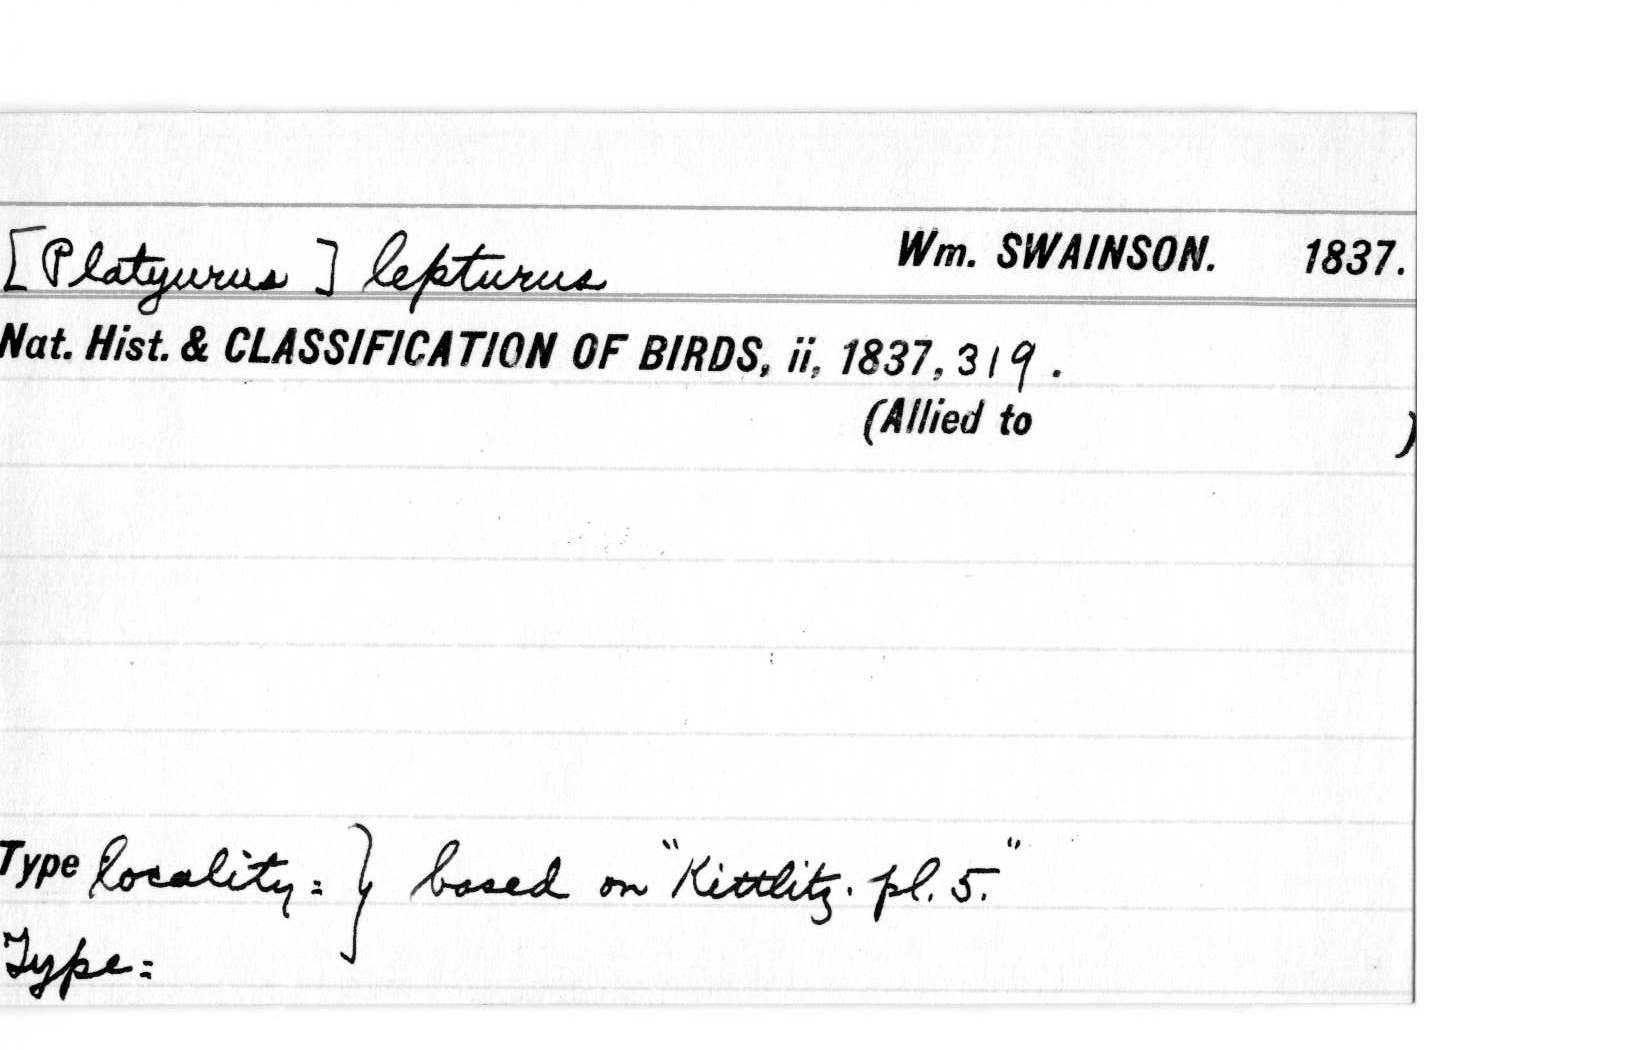 [Platyurus] lepturus Wm. SWAINSON. 1837.
Nat. Hist. & CLASSIFICATION OF BIRDS, ii, 1837, 319.
(Allied to )
Type locality = } based on "Kittlitz. pl. 5."
Type =